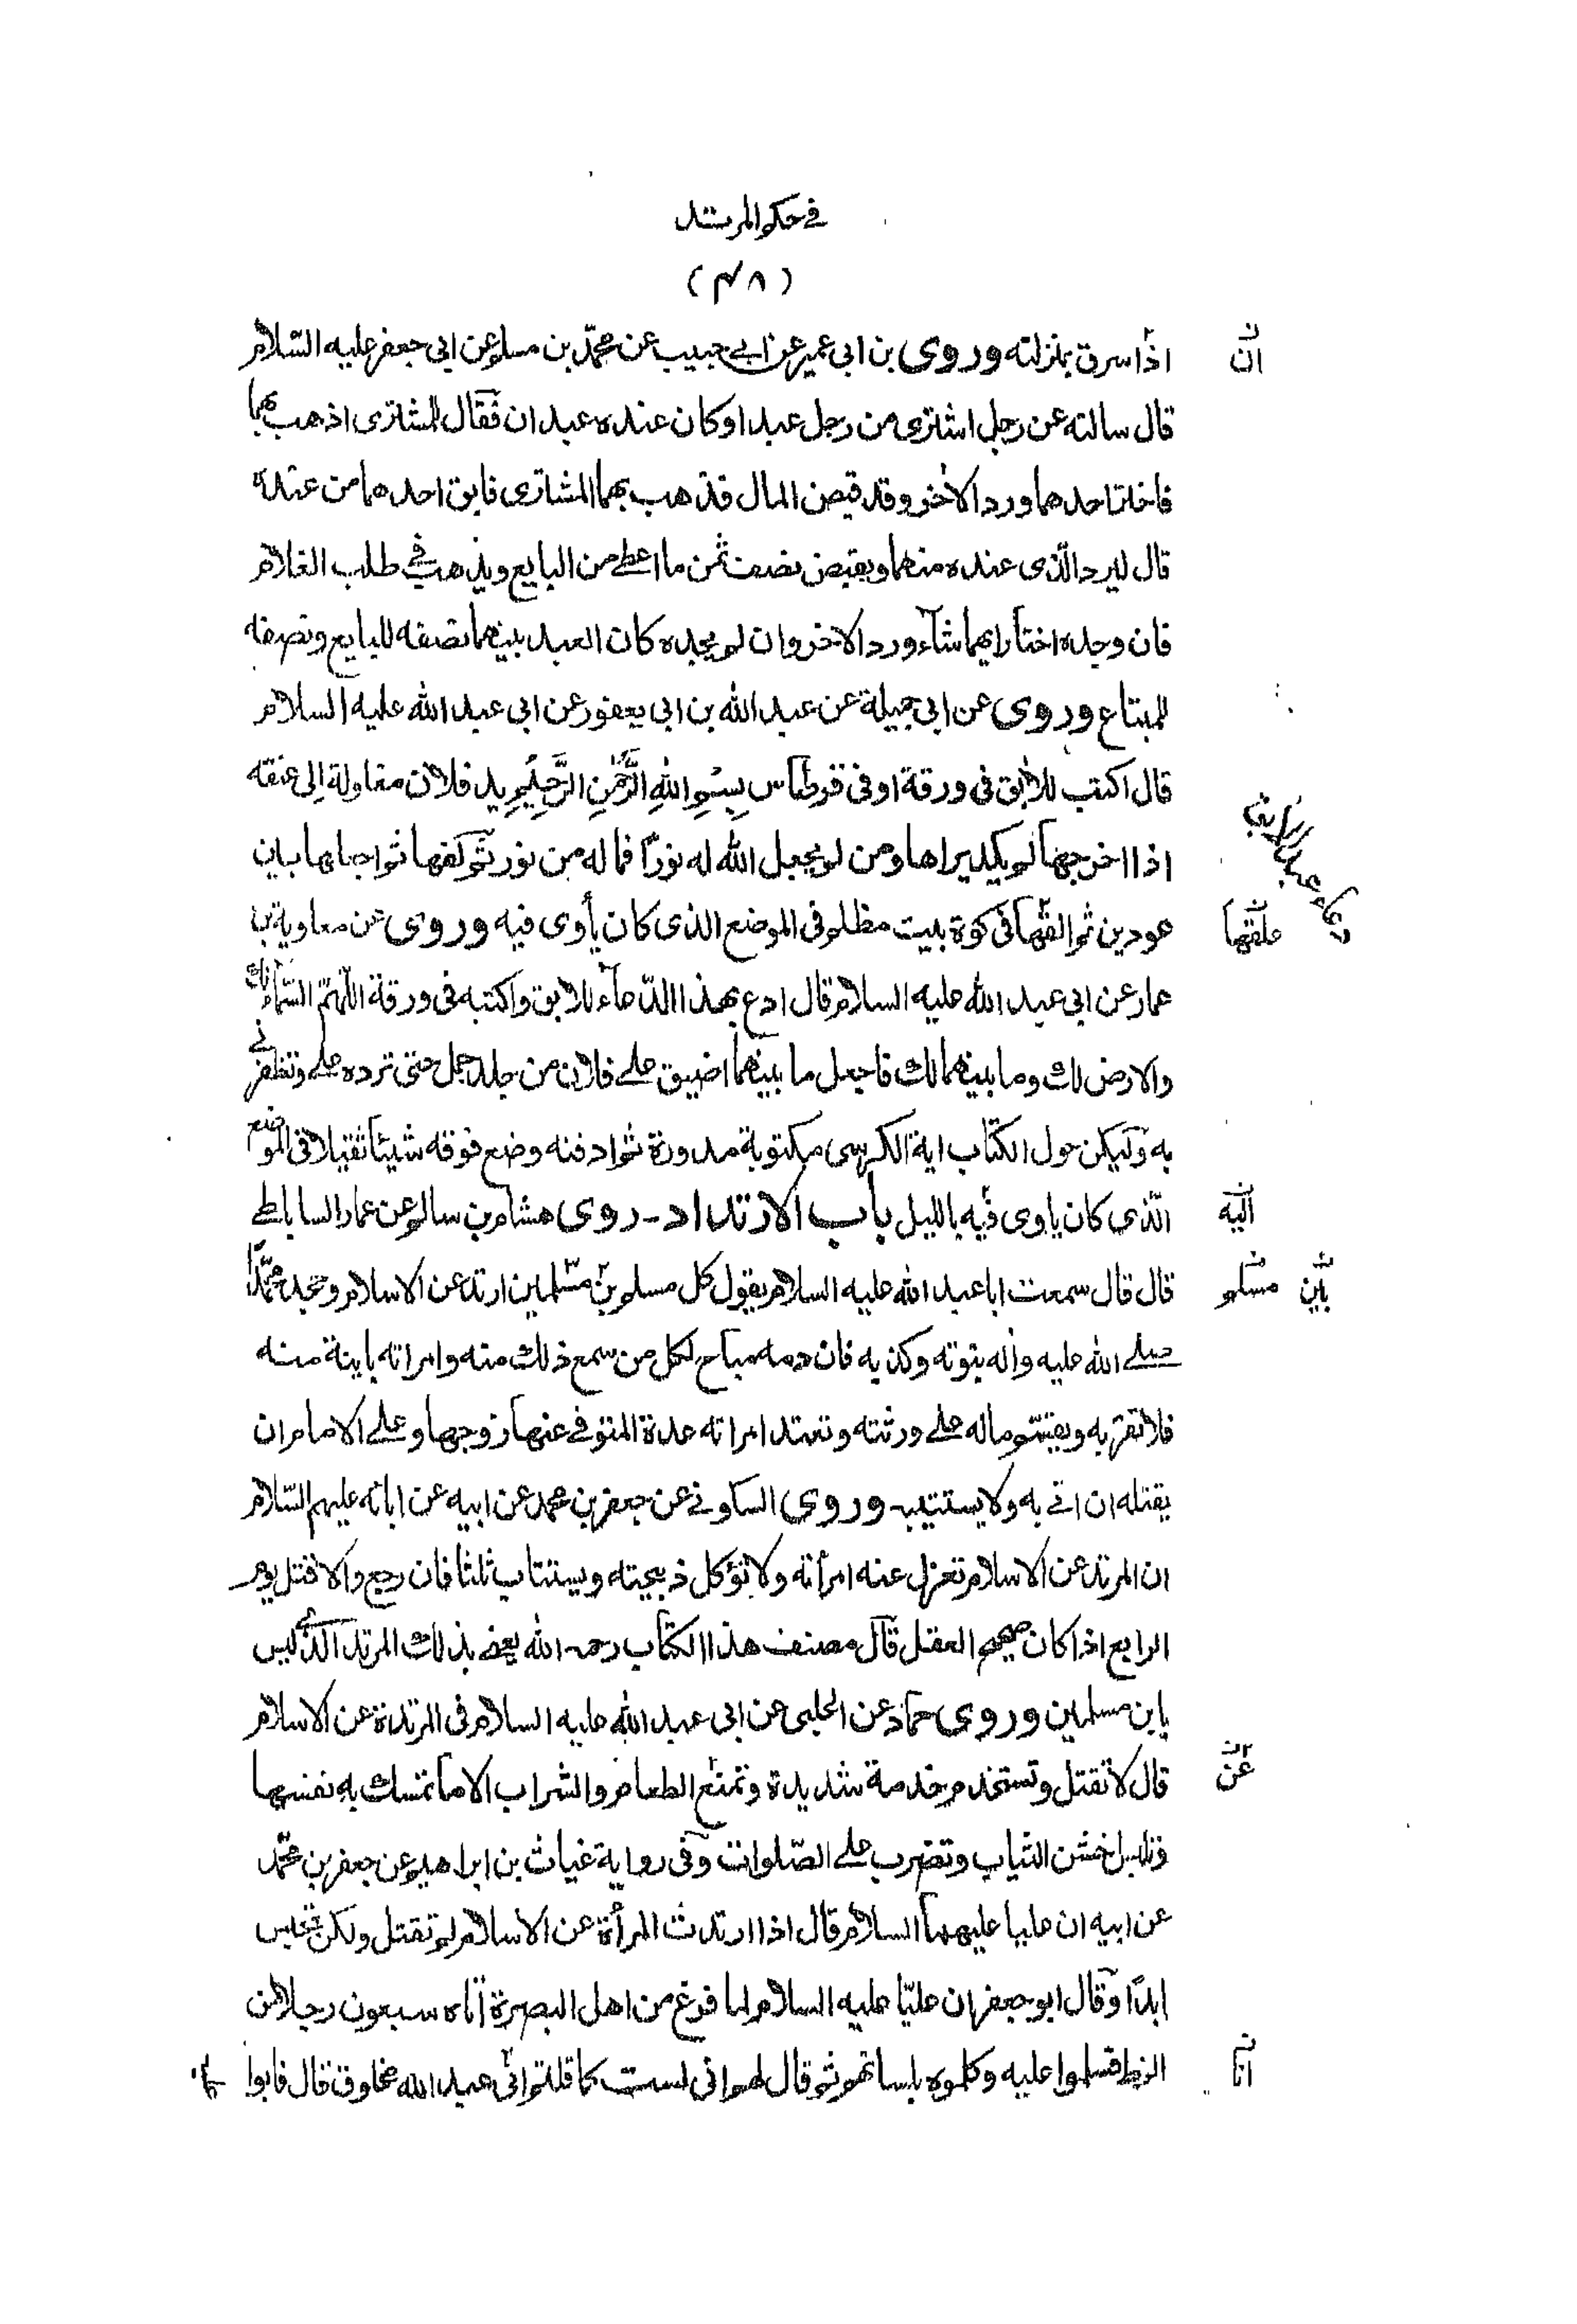 في حكم المرتد
(٤٨)
اذا سرق بمنزلته وروى بن ابى عمير عن ابي حبيب عن محمّد بن مسلم عن ابى جعفر عليه السّلام
ان
قال سالته عن رجل اشترى من رجل عبدا وكان عنده عبدان فقال للمشترى اذهب بهما
فاختر احدهما ورد الاخر وقد قبض المال فذهب بهما المشترى فابق احدهما من عنده
قال ليرد الّذى عنده منهما ويقبض نصف ثمن ما اعطے من البايع ويذهب في طلب الغلام
فان وجده اختار ايهما شآء ورد الاخر وان لم يجده كان العبد بينهما نصفه للبايع ونصفه
للمبتاع وروى عن ابى جميلة عن عبد الله بن ابى يعفور عن ابى عبد الله عليه السلام
قال اكتب للآبق فى ورقة او فى قرطاس بِسْمِ اللهِ الرَّحْمٰنِ الرَّحِيْمِ يد فلان مغلولة الى عنقه
دعاء عبد الابق
اذا اخرجها لم يكد يراها ومن لم يجعل الله له نورًا فما له من نور ثم لفها ثم اجعلها بين
عودين ثم القها فى كوة بيت مظلم فى الموضع الذى كان يأوى فيه وروى عن معاوية بن
علقها
عمار عن ابى عبد الله عليه السلام قال ادع بهذا الدّعآء للابق واكتبه فى ورقة اللّهمّ السّمآء لك
والارض لك وما بينهما لك فاجعل ما بينهما اضيق علے فلان من جلد جمل حتى ترده علے وتظفرنے
به وليكن حول الكتاب اية الكرسى مكتوبة مدورة ثم ادفنه وضع فوقه شيئا ثقيلا فى الموضع
الّذى كان ياوى فيه بالليل باب الارتداد - روى هشام بن سالم عن عمار الساباطے
اليه
قال قال سمعت ابا عبد الله عليه السلام يقول كل مسلم بن مسلمين ارتد عن الاسلام وجحد محمّدًا
بين مسلم
صلے الله عليه واله نبوته وكذبه فان دمه مباح لكل من سمع ذلك منه وامراته باينة منه
فلا تقربه ويقسّم ماله علے ورثته وتعتد امراته عدة المتوفے عنها زوجها وعلے الامام ان
يقتله ان اتے به ولا يستتيبه - وروى السكونے عن جعفر بن محمد عن ابيه عن ابائه عليهم السّلام
ان المرتد عن الاسلام تعزل عنه امرأته ولا تؤكل ذبيحته ويستتاب ثلثا فان رجع والا قتل يوم
الرابع اذا كان صحيح العقل قال مصنف هذا الكتاب رحمه الله يعنے بذلك المرتد الّذے ليس
بابن مسلمين وروى حمّاد عن الحلبى عن ابى عبد الله عليه السلام فى المرتدة عن الاسلام
قال لا تقتل وتستخدم خدمة شديدة وتمنع الطعام والشراب الا ما تمسك به نفسها
عن
وتلبس خشن الثياب وتضرب علے الصّلوات وفى رواية غياث بن ابراهيم عن جعفر بن محمّد
عن ابيه ان عليا عليهما السلام قال اذا ارتدت المرأة عن الاسلام لم تقتل ولكن تحبس
ابدًا وقال ابو جعفر ان عليّا عليه السلام لما فرغ من اهل البصرة أتاه سبعون رجلا من
الزط فسلموا عليه وكلموه بلسانهم ثم قال لهم انى لست كما قلتم انى عبد الله مخلوق قال فابوا
انا